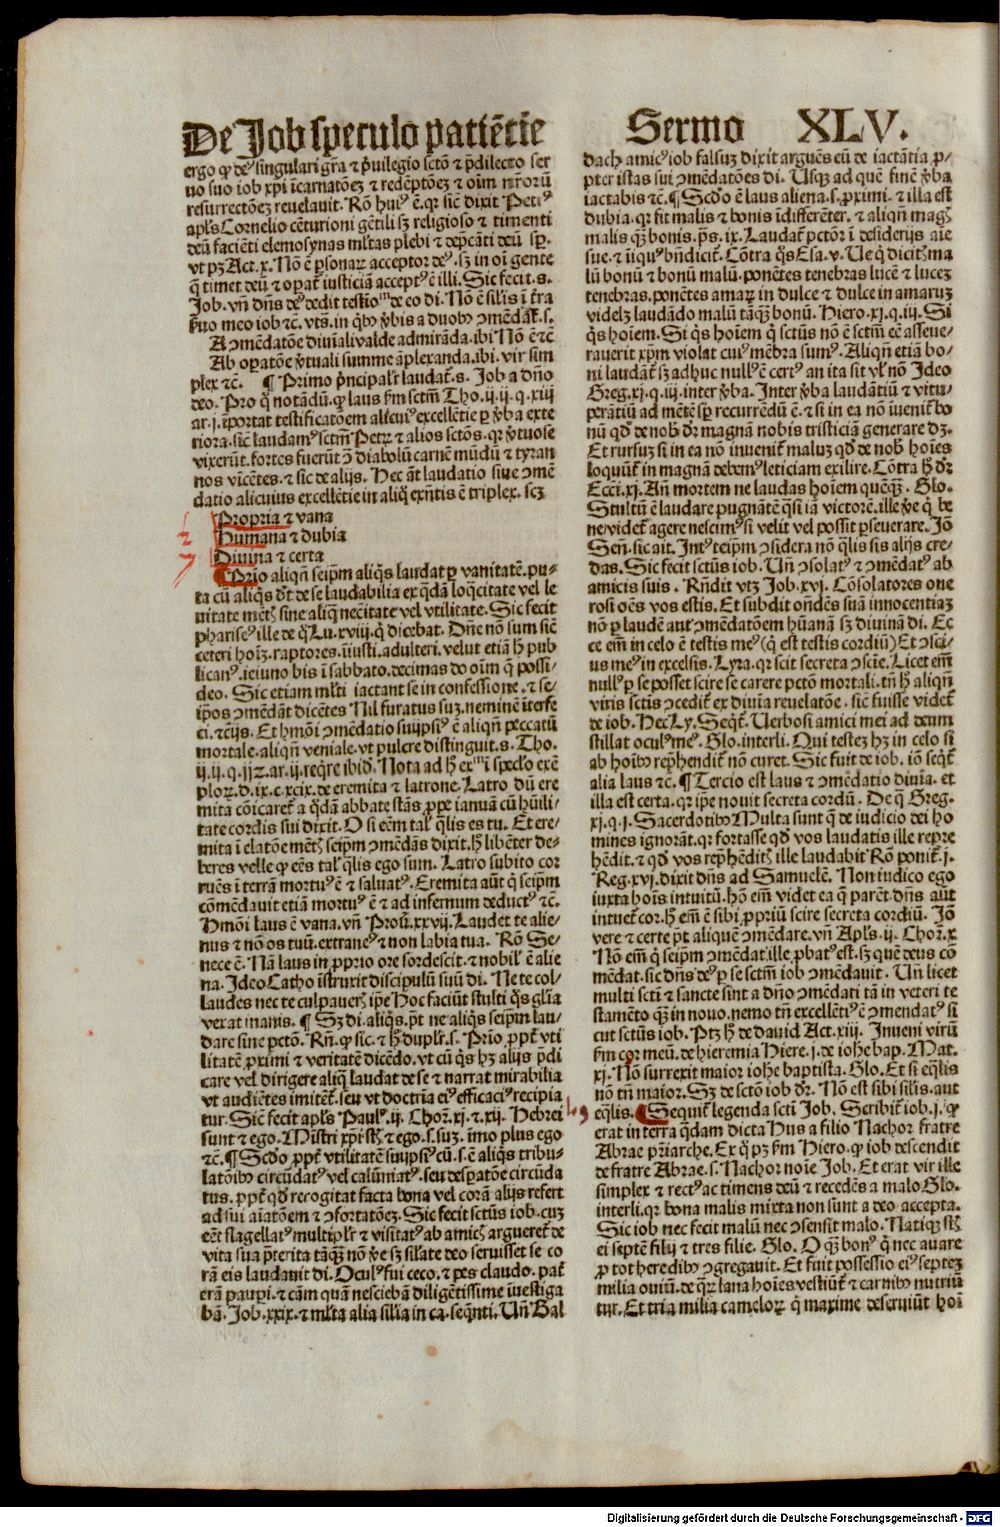 De Job speculo patiẽcie
Sermo XLV.
ergo qꝫ deꝰ singulari gr̃a ⁊ p̃uilegio scto ⁊ p̃dilecto ser
uo suo iob xp̃i ĩcarnatõeꝫ ⁊ redẽptõeꝫ ⁊ oĩm nr̃orũ
resurrectõeꝫ reuelauit. Rõ huiꝰ ẽ. qꝛ sic̃ dixit Petrꝰ
apl̃s Cornelio cẽturioni gẽtili sꝫ religioso ⁊ timenti
deũ faciẽti elemosynas ml̃tas plebi ⁊ dep̃cãti deũ sp̃.
vt pꝫ Act. x. Nõ ẽ p̱sonaꝝ acceptor deꝰ. sꝫ in oĩ gente
q̃ timet deũ ⁊ opat̃ iusticiã acceptꝰ ẽ illi. Sic fecit. s.
Job. vñ dñs deꝰ dedit testioᵐ de eo di. Nõ ẽ sil̃is ĩ t̃ra
ẜuo meo iob ⁊c. vtꝫ. in qͥbꝰ v̓bis a duobꝰ ↄmẽdat̃. s.
A ↄmẽdatõe diuĩali valde admirãda. ibi Nõ ẽ ⁊c̃
Ab opatõe v̓tuali summe ãplexanda. ibi. vir sim
plex ⁊c. ¶ Primo p̃ncipalr̃ laudat̃. s. Job a dño
deo. Pro q̊ notãdũ. qꝫ laus ẜm sctm̃ Tho. ij. ij. q. xiij
ar. j. ĩportat testificatõem alicuiꝰ excellẽtie p̱ v̓ba exte
riora. sic̃ laudamꝰ sctm̃ Petꝝ ⁊ alios sctõs. qꝛ v̓tuose
vixerũt. fortes fuerũt ↄ̃ diabolũ carnẽ mũdũ ⁊ tyran
nos vicẽtes. ⁊ sic de alijs. Hec aũt laudatio siue ↄmẽ
datio alicuius excellẽtie in aliq̊ exñtis ẽ triplex. scꝫ
Propria ⁊ vana
Humana ⁊ dubia
Diuina ⁊ certa
¶ Prio aliqñ seip̃m aliqͥs laudat p̱ vanitatẽ. pu-
ta cũ aliqͥs dr̃t de se laudabilia ex q̃dã loq̃citate vel le
uitate mẽtꝭ sine aliq̃ necĩtate vel vtilitate. Sic fecit
phariseꝰ ille de q̊ Lu. xviij. q̃ dicebat. Dñe nõ sum sic̃
ceteri hoĩꝫ. raptores. iniusti. adulteri. velut etiã h̃ pub
licanꝰ. ieiuno bis ĩ sabbato. decimas do oĩm q̃ possi/
deo. Sic etiam ml̃ti iactant se in confessione. ⁊ se/
ip̃os ↄmẽdãt dicẽtes Nil furatus suꝫ. neminẽ ĩterfe
ci. ⁊c̃ijs. Et hmõi ↄmẽdatio suijpsiꝰ ẽ aliqñ peccatũ
mortale. aliqñ veniale. vt pulcre distinguit. s. Tho.
ij. ij. q. 112. ar. ij. req̃re ibid̃. Nota ad h̃ exᵐ ĩ spec̃lo exẽ
ploꝝ. d. ix. c. xcix. de eremita ⁊ latrone. Latro dũ ere
mita cõicaret̃ a q̃dã abbate stãs p̱pe ianuã cũ hũili/
tate cordis sui dixit. O si eẽm tal̃ q̃lis es tu. Et ere/
mita ĩ elatõe mẽtꝭ seip̃m ↄmẽdãs dixit. h̃ libẽter de-
beres velle qꝫ eẽs tal̃ q̃lis ego sum. Latro subito cor
ruẽs ĩ terrã mortuꝰ ẽ ⁊ saluatꝰ. Eremita aũt q̃ seip̃m
cõmẽdauit etiã mortuꝰ ẽ ⁊ ad infernum deductꝰ ⁊c̃.
Hmõi laus ẽ vana. vñ Prou̓. xxvij. Laudet te alie/
nus ⁊ nõ os tuũ. extraneꝰ ⁊ non labia tua. Rõ Se/
nece ẽ. Nã laus in p̱prio ore sordescit. ⁊ nobil̃ ẽ alie
na. Ideo Catho ĩstruxit discipulũ suũ di. Ne te col/
laudes nec te culpauerꝭ ip̃e Hoc faciũt stulti qͥs gl̃ia
vexat inanis. ¶ Sꝫ di. aliqͥs. p̃t ne aliqͥs seip̃m lau/
dare sine pctõ. Rñ. qꝫ sic. ⁊ h̃ duplr̃. s. Prio. p̱pt̃ vti
litatẽ p̱ximi ⁊ veritatẽ dicẽdo. vt cũ qͥs hꝫ alijs p̃di
care vel dirigere aliq̃ laudat de se ⁊ narrat mirabilia
vt audiẽtes imitẽt̃. seu vt doctrĩa eiꝰ efficaciꝰ recipia
tur. Sic̃ fecit apl̃s Paulꝰ. ij. Choꝝ. xj. ⁊ xij. Hebrei
sunt ⁊ ego. Mĩstri xp̃i sũt ⁊ ego. s. suꝫ. ĩmo plus ego
⁊c̃. ¶ Scd̃o p̱pt̃ vtilitatẽ suijpsiꝰ cũ. s. ẽ aliqͥs tribu-
latõibꝰ circũdatꝰ vel calũniatꝰ. seu desp̱atõe circũda
tus. p̱pt̃ qd̃ recogitat facta bona vel corã alijs refert
ad sui aĩatõem ⁊ ↄfortatõeꝫ. Sic fecit sctũs iob. cuꝫ
eẽt flagellatꝰ multiplr̃ ⁊ visitatꝰ ab amicꝭ argueret̃ de
vita sua p̃terita tãq̃ꝫ nõ v̓e sꝫ sil̃ate deo seruisset se co
rã eis laudauit di. Oculꝰ fui ceco. ⁊ pes claudo. pat̃
erã paupi. ⁊ cãm quã nesciebã diligẽtissime ĩuestiga
bã. Job. xxix. ⁊ ml̃ta alia sil̃ia in ca. seq̃nti. Uñ Bal
dach amicꝰ iob falsuꝫ dixit arguẽs eũ de iactãtia p̱-
pter istas sui ↄmẽdatões di. Usqꝫ ad quẽ finẽ v̓ba
iactabis ⁊c̃. ¶ Scd̃o ẽ laus aliena. s. p̱ximi. ⁊ illa est
dubia. qꝛ fit malis ⁊ bonis ĩdifferẽter. ⁊ aliqñ magꝭ
malis q̃ꝫ bonis. ps̃. ix. Laudat̃ pctõr ĩ desiderijs aĩe
sue. ⁊ iniquꝰ bñdicit̃. Cõtra qͥs Esa. v. Ue q̃ dicitꝭ ma
lũ bonũ ⁊ bonũ malũ. ponẽtes tenebras lucẽ ⁊ luceꝫ
tenebras. ponẽtes amaꝝ in dulce ⁊ dulce in amaruꝫ
videlꝫ laudãdo malũ tãq̃ꝫ bonũ. Hiero. xj. q. iij. Si
qͥs hoĩem. Si qͥs hoĩem q̃ sctũs nõ ẽ sctm̃ eẽ asseue/
rauerit xp̃m violat cuiꝰ mẽbra sumꝰ. Aliqñ etiã bo/
ni laudãt̃ sꝫ adhuc nullꝰ ẽ certꝰ an ita sit vl̃ nõ Ideo
Greg. xj. q. iij. inter v̓ba. Inter v̓ba laudãtiũ ⁊ vitu/
perãtiũ ad mẽtẽ sp̱ recurrẽdũ ẽ. ⁊ si in ea nõ ĩuenit̃ bo
nũ qd̃ de nobꝭ dr̃ magnã nobis tristiciã generare dꝫ.
Et rursuꝫ si in ea nõ inuenit̃ maluꝫ qd̃ de nobꝭ hoĩes
loquũt̃ in magnã debemꝰ leticiam exilire. Cõtra h̃ dr̃
Ecci. xj. Añ mortem ne laudas hoĩem quẽq̃ꝫ. Glo.
Stultũ ẽ laudare pugnãtẽ q̃si iã victorẽ. ille v̓e q̃ be
ne videt̃ agere nescimꝰ si velit vel possit p̱seuerare. Jõ
Sen̄. sic ait. Intꝰ teip̃m ↄsidera nõ q̃lis sis alijs cre-
das. Sic fecit sctũs iob. Uñ ↄsolatꝰ ⁊ ↄmẽdatꝰ ab
amicis suis. Rñdit vtꝫ Job. xvj. Cõsolatores one
rosi oẽs vos estis. Et subdit oñdẽs suã innocentiaꝫ
nõ p̱ laudẽ aut ↄmẽdatõem hũanã sꝫ diuinã di. Ec
ce em̃ in celo ẽ testis meꝰ (q̃ est testis cordiũ) Et ↄsci-
us meꝰ in excelsis. Lyra. qꝛ scit secreta ↄscĩe. Licet em̃
nullꝰ p̱ se posset scire se carere pctõ mortali. tñ h̃ aliqñ
viris sctis ↄcedit̃ ex diuĩa reuelatõe. sic̃ fuisse videt̃
de iob. Hec Ly. Seq̃t̃. Uerbosi amici mei ad deum
stillat oculꝰ meꝰ. Glo. interli. Qui testeꝫ hꝫ in celo si
ab hoĩbꝰ rep̃hendit̃ non curet. Sic fuit de iob. iõ seq̃t̃
alia laus ⁊c̃. ¶ Tercio est laus ⁊ ↄmẽdatio diuĩa. et
illa est certa. qꝛ ip̃e nouit secreta cordiũ. De q̊ Greg.
xj. q. j. Sacerdotibꝰ Multa sunt q̃ de iudicio dei ho
mines ignorãt. qꝛ fortasse qd̃ vos laudatis ille repre
hẽdit. ⁊ qd̃ vos rep̃hẽditꝭ ille laudabit Rõ ponit̃. j.
Reg. xvj. dixit dñs ad Samuelẽ. Non iudico ego
iuxta hoĩs intuitũ. hõ em̃ videt ea q̃ parẽt. dñs aut
intuet̃ cor. h̃ em̃ ẽ sibi p̱priũ scire secreta cordiũ. Jõ
vere ⁊ certe p̃t aliquẽ ↄmẽdare. vñ Apl̃s. ij. Choꝝ. x.
Nõ em̃ q̃ seip̃m ↄmẽdat. ille p̱batꝰ est. sꝫ quẽ deus cõ
mẽdat. sic dñs deꝰ p̱ se sctm̃ iob ↄmẽdauit. Uñ licet
multi scti ⁊ sancte sint a dño ↄmẽdati tã in veteri te
stamẽto q̃ꝫ in nouo. nemo tñ excellẽtiꝰ ẽ ↄmendatꝰ si
cut sctũs iob. Ptꝫ h̃ de dauid Act. xiij. Inueni virũ
ẜm cor meũ. de hieremia Hiere. j. de iohe bap. Mat.
xj. Nõ surrexit maior iohe baptista. Glo. Et si eq̃lis
nõ tñ maior. Sꝫ de sctõ iob dr̃. Nõ est sibi sil̃is. aut
eq̃lis. ¶ Sequit̃ legenda scti Job. Scribit̃ iob. j. qꝫ
erat in terra q̃dam dicta Hus a filio Nachor fratre
Abrae pr̃iarche. Ex q̊ pꝫ ẜm Hiero. qꝫ iob descendit
de fratre Abrae. s. Nachor noĩe Job. Et erat vir ille
simplex ⁊ rectꝰ ac timens deũ ⁊ recedẽs a malo Glo.
interli. qꝛ bona malis mixta non sunt a deo accepta.
Sic iob nec fecit malũ nec ↄsensit malo. Natiqꝫ sũt
ei septẽ filij ⁊ tres filie. Glo. O q̃ꝫ bonꝰ q̃ nec auare
p̱ tot heredibꝰ ↄgregauit. Et fuit possessio eiꝰ septeꝫ
milia ouiũ. de qͣꝝ lana hoĩes vestiũt̃ ⁊ carnibꝰ nutriũ
tur. Et tria milia cameloꝝ q̃ maxime deseruiũt hoĩ
Digitalisierung gefördert durch die Deutsche Forschungsgemeinschaft - DFG